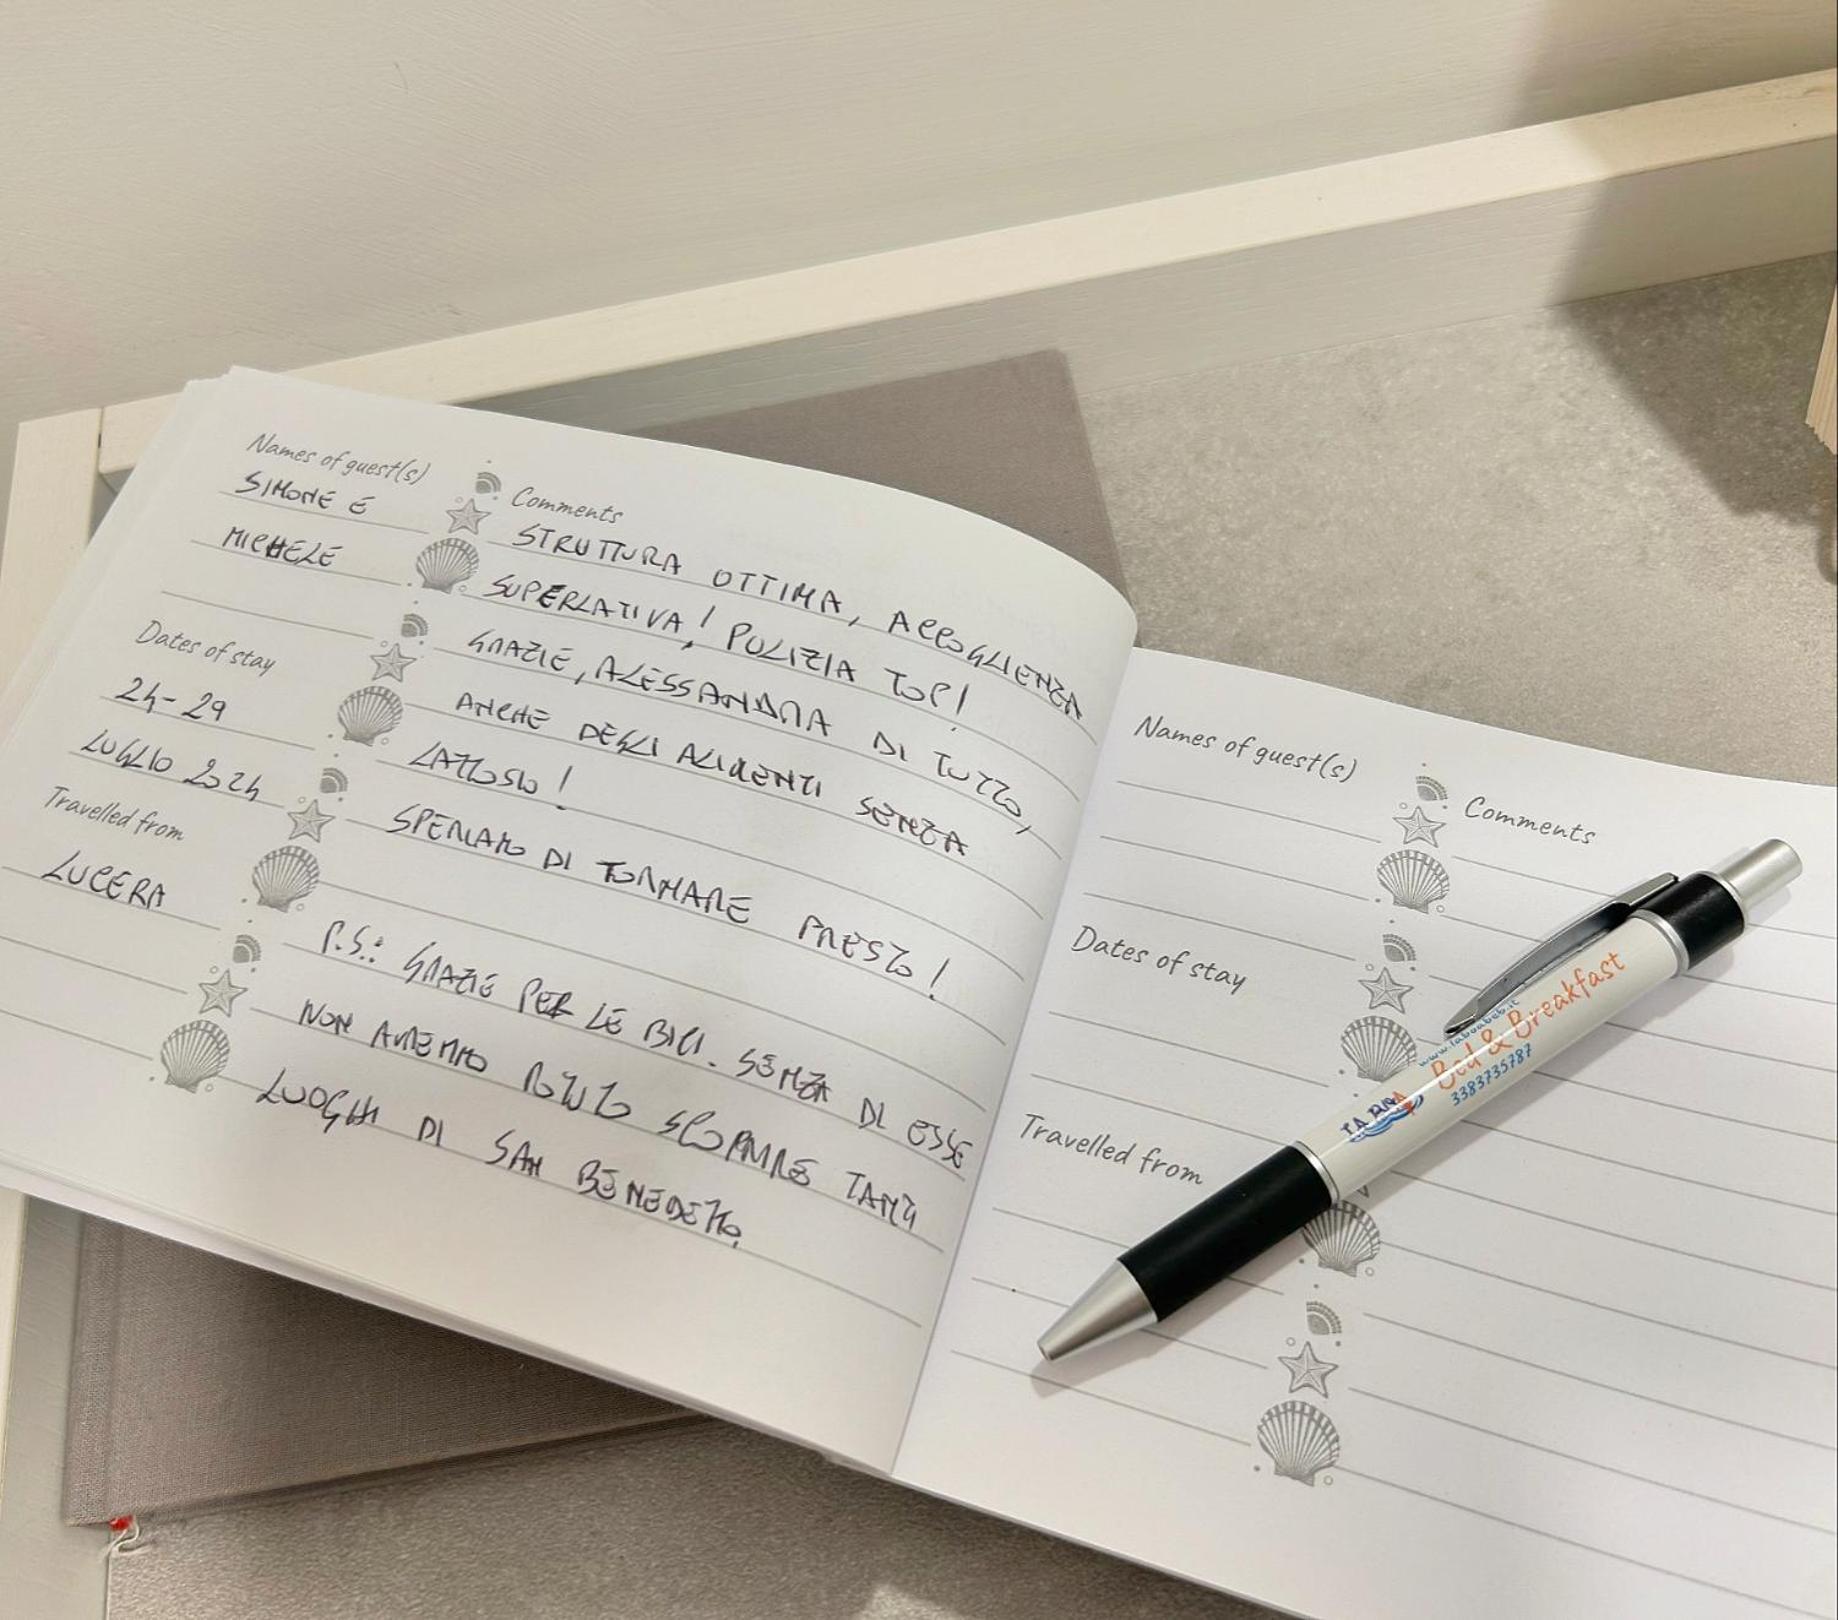 Names of guest(s)
SIMONE E
MICHELE
Dates of stay
24-29
LUGLIO 2024
Travelled from
LUCERA
Comments
STRUTTURA OTTIMA, ACCOGLIENZA
SUPERLATIVA! PULIZIA TOP!
GRAZIE, ALESSANDRA DI TUTTO,
ANCHE DEGLI ALIMENTI SENZA
LATTOSIO!
SPERIAMO DI TORNARE PRESTO!
P.S.: GRAZIE PER LE BICI. SENZA DI ESSE
NON AVREMMO POTUTO SCOPRIRE TANTI
LUOGHI DI SAN BENEDETTO.
Names of guest(s)
Comments
Dates of stay
Travelled from
www.laboabeb.it
Bed & Breakfast
3383735787
LA BOA